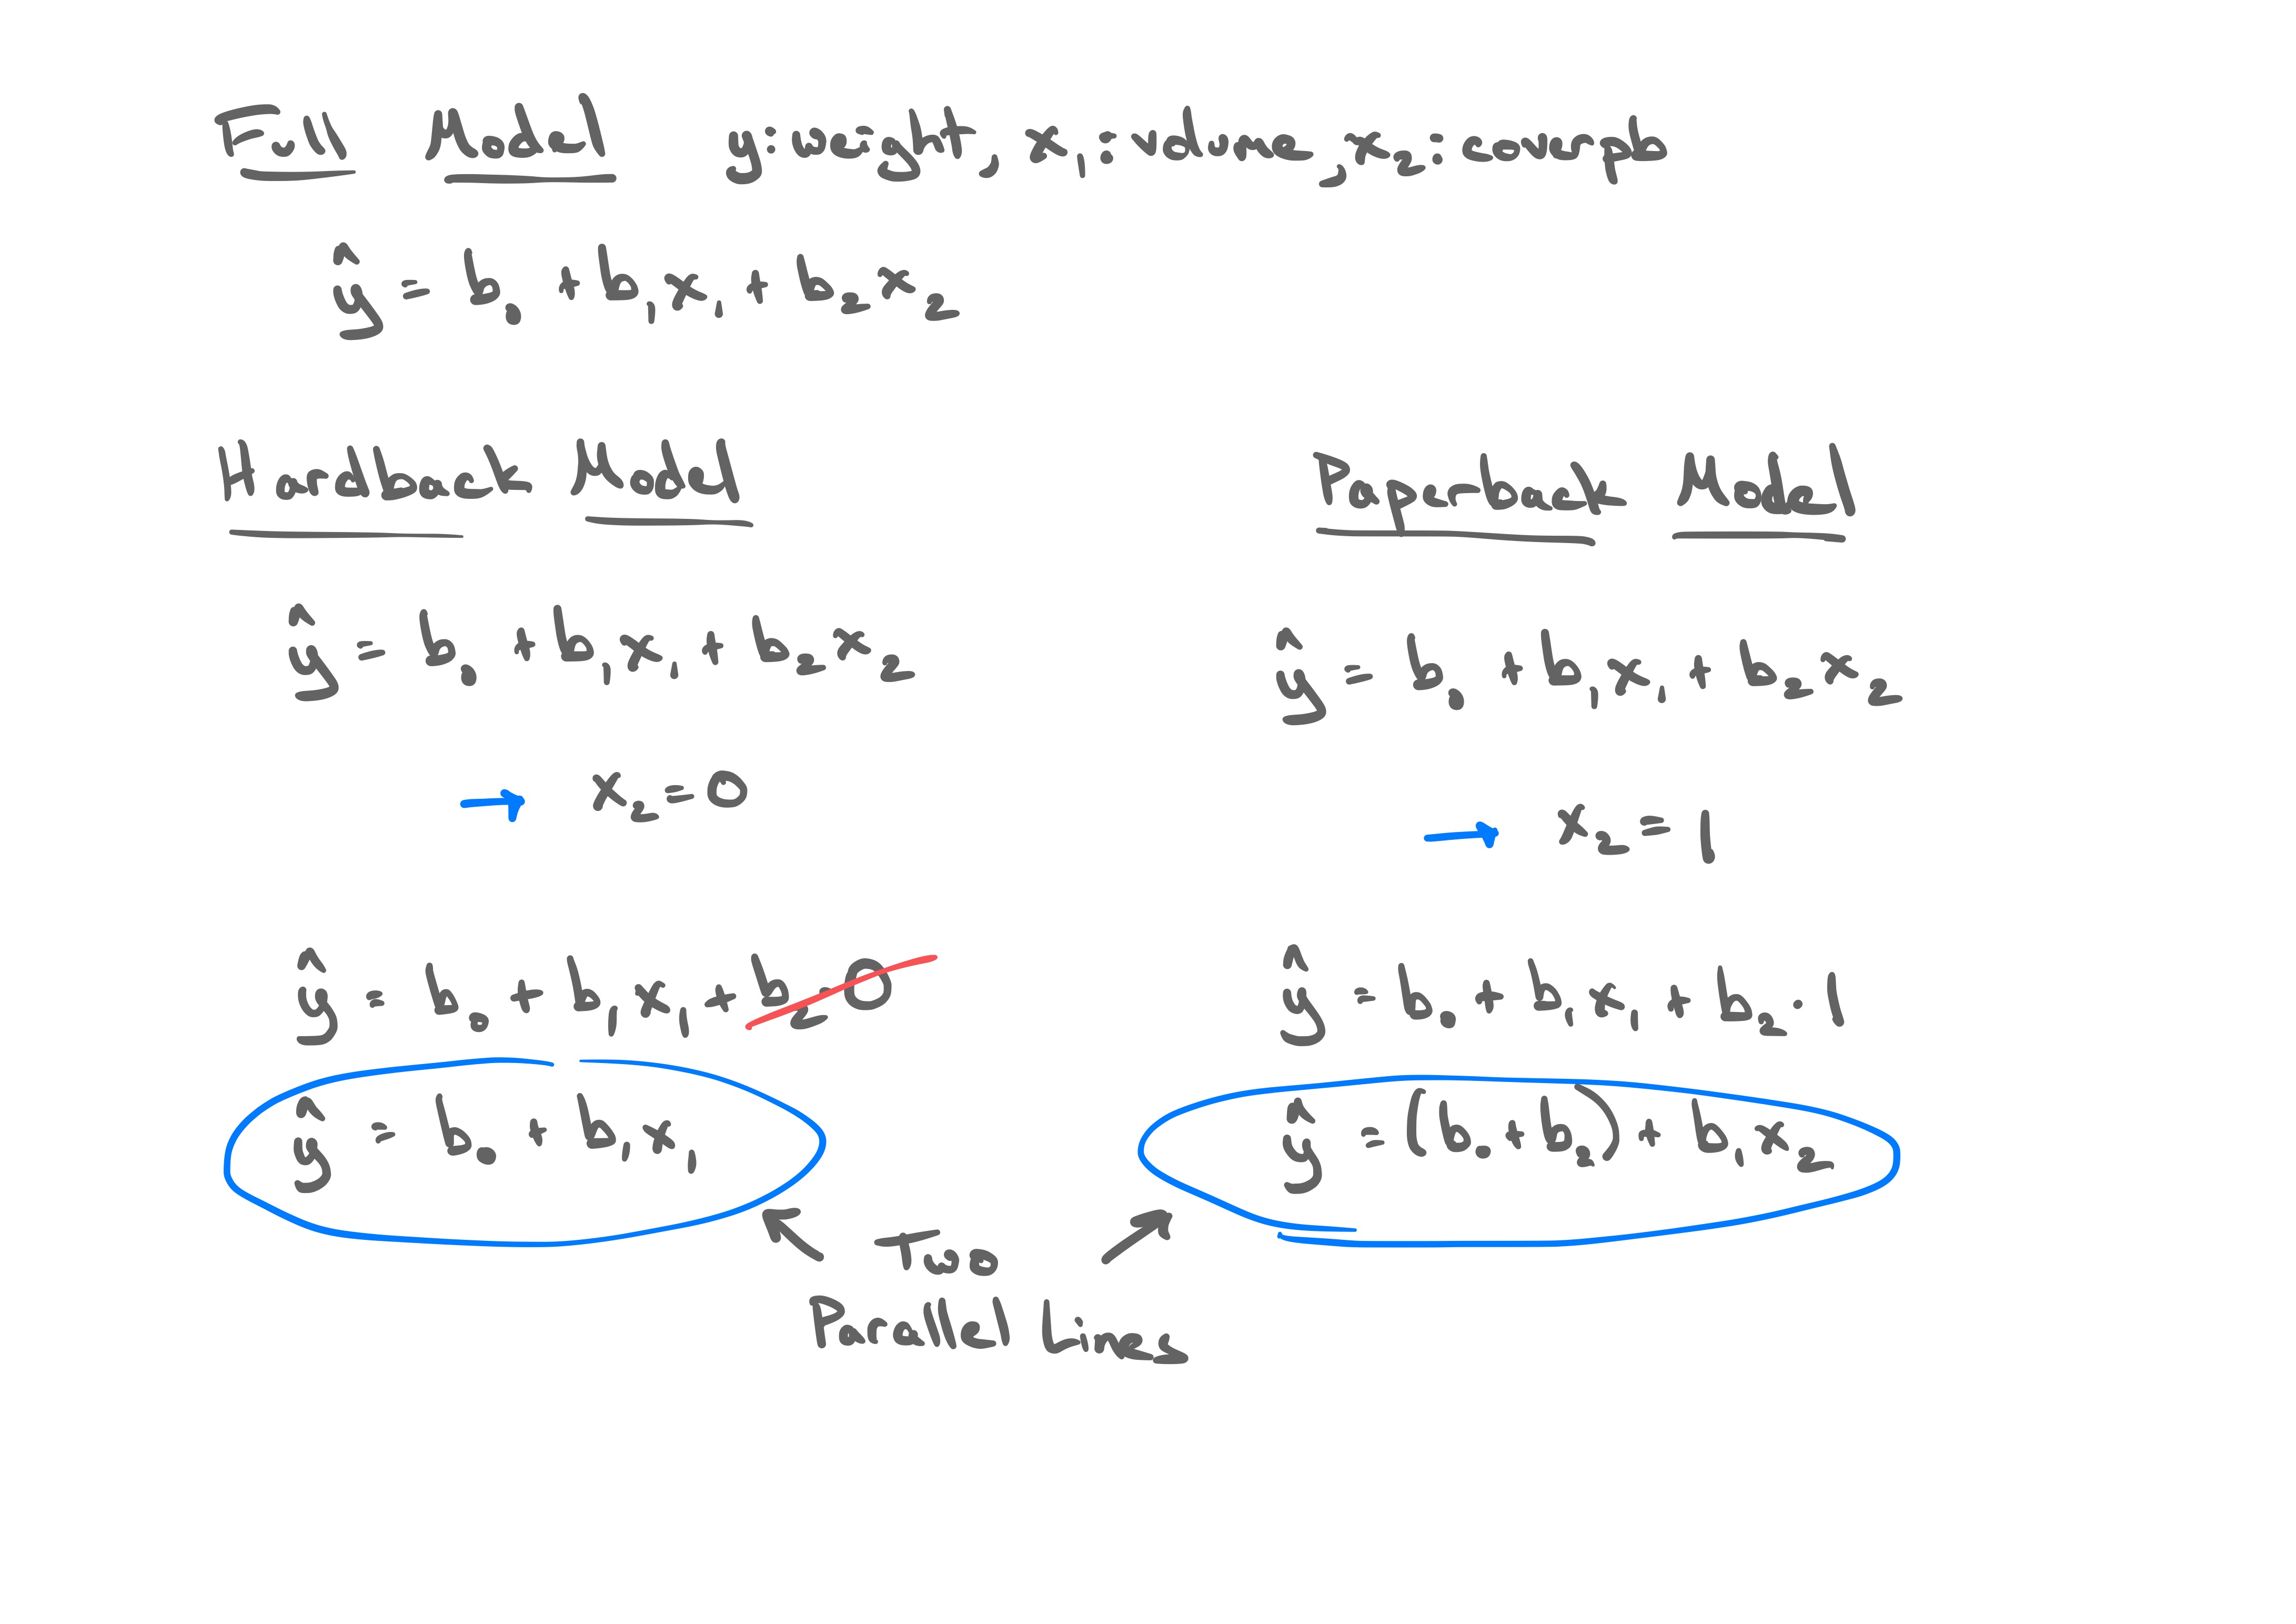 Full Model y: weight, x₁: volume, x₂: coverpb
ŷ = b₀ + b₁x₁ + b₂x₂
Hardback Model
ŷ = b₀ + b₁x₁ + b₂x₂
→ x₂ = 0
ŷ = b₀ + b₁x₁ + b₂·0
ŷ = b₀ + b₁x₁
Paperback Model
ŷ = b₀ + b₁x₁ + b₂x₂
→ x₂ = 1
ŷ = b₀ + b₁x₁ + b₂·1
ŷ = (b₀ + b₂) + b₁x₂
Two
Parallel Lines